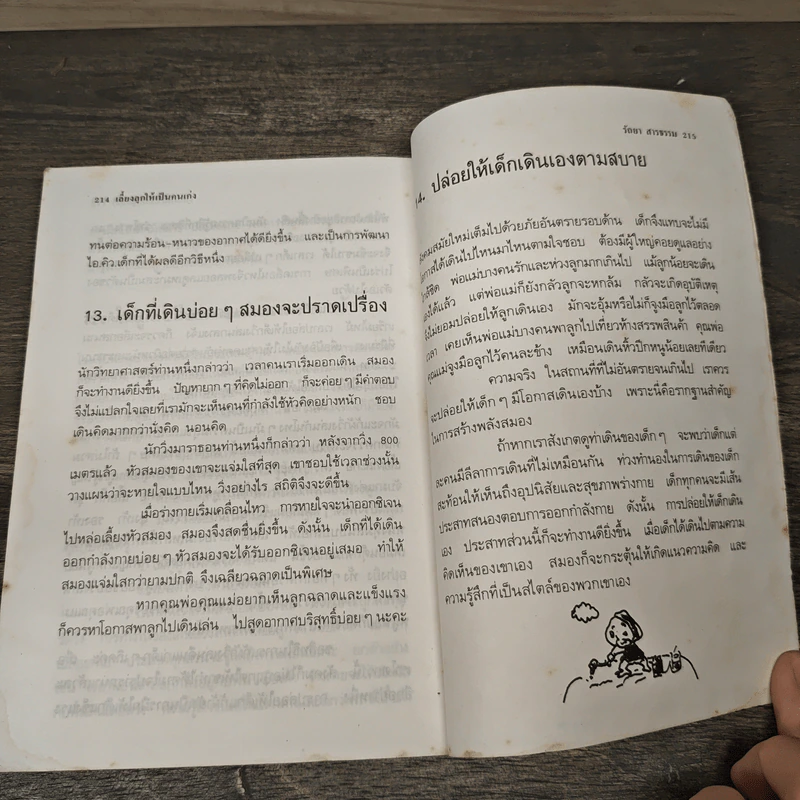 214 เลี้ยงลูกให้เป็นคนเก่ง
ทนต่อความร้อน-หนาวของอากาศได้ดียิ่งขึ้น และเป็นการพัฒนา
ไอ.คิว.เด็กที่ได้ผลดีอีกวิธีหนึ่ง
13. เด็กที่เดินบ่อย ๆ สมองจะปราดเปรื่อง
นักวิทยาศาสตร์ท่านหนึ่งกล่าวว่า เวลาคนเราเริ่มออกเดิน สมอง
ก็จะทำงานดียิ่งขึ้น ปัญหายาก ๆ ที่คิดไม่ออก ก็จะค่อย ๆ มีคำตอบ
จึงไม่แปลกใจเลยที่เรามักจะเห็นคนที่กำลังใช้หัวคิดอย่างหนัก ชอบ
เดินคิดมากกว่านั่งคิด นอนคิด
นักวิ่งมาราธอนท่านหนึ่งก็กล่าวว่า หลังจากวิ่ง 800
เมตรแล้ว หัวสมองของเขาจะแจ่มใสที่สุด เขาชอบใช้เวลาช่วงนั้น
วางแผนว่าจะหายใจแบบไหน วิ่งอย่างไร สถิติจึงจะดีขึ้น
เมื่อร่างกายเริ่มเคลื่อนไหว การหายใจจะนำออกซิเจน
ไปหล่อเลี้ยงหัวสมอง สมองจึงสดชื่นยิ่งขึ้น ดังนั้น เด็กที่ได้เดิน
ออกกำลังกายบ่อย ๆ หัวสมองจะได้รับออกซิเจนอยู่เสมอ ทำให้
สมองแจ่มใสกว่ายามปกติ จึงเฉลียวฉลาดเป็นพิเศษ
หากคุณพ่อคุณแม่อยากเห็นลูกฉลาดและแข็งแรง
ก็ควรหาโอกาสพาลูกไปเดินเล่น ไปสูดอากาศบริสุทธิ์บ่อย ๆ นะคะ
รัถยา สารธรรม 215
4. ปล่อยให้เด็กเดินเองตามสบาย
สมัยใหม่เต็มไปด้วยภัยอันตรายรอบด้าน เด็กจึงแทบจะไม่มี
ได้เดินไปไหนมาไหนตามใจชอบ ต้องมีผู้ใหญ่คอยดูแลอย่าง
พ่อแม่บางคนรักและห่วงลูกมากเกินไป แม้ลูกน้อยจะเดิน
ได้แล้ว แต่พ่อแม่ก็ยังกลัวลูกจะหกล้ม กลัวจะเกิดอุบัติเหตุ
ไม่ยอมปล่อยให้ลูกเดินเอง มักจะอุ้มหรือไม่ก็จูงมือลูกไว้ตลอด
เวลา เคยเห็นพ่อแม่บางคนพาลูกไปเที่ยวห้างสรรพสินค้า คุณพ่อ
คุณแม่จูงมือลูกไว้คนละข้าง เหมือนเดินหิ้วปีกหนูน้อยเลยทีเดียว
ความจริง ในสถานที่ที่ไม่อันตรายจนเกินไป เราควร
จะปล่อยให้เด็ก ๆ มีโอกาสเดินเองบ้าง เพราะนี่คือรากฐานสำคัญ
ในการสร้างพลังสมอง
ถ้าหากเราสังเกตดูท่าเดินของเด็ก ๆ จะพบว่าเด็กแต่
ละคนมีลีลาการเดินที่ไม่เหมือนกัน ท่วงทำนองในการเดินของเด็ก
สะท้อนให้เห็นถึงอุปนิสัยและสุขภาพร่างกาย เด็กทุกคนจะมีเส้น
ประสาทสนองตอบการออกกำลังกาย ดังนั้น การปล่อยให้เด็กเดิน
เอง ประสาทส่วนนี้ก็จะทำงานดียิ่งขึ้น เมื่อเด็กได้เดินไปตามความ
คิดเห็นของเขาเอง สมองก็จะกระตุ้นให้เกิดแนวความคิด และ
ความรู้สึกที่เป็นสไตล์ของพวกเขาเอง